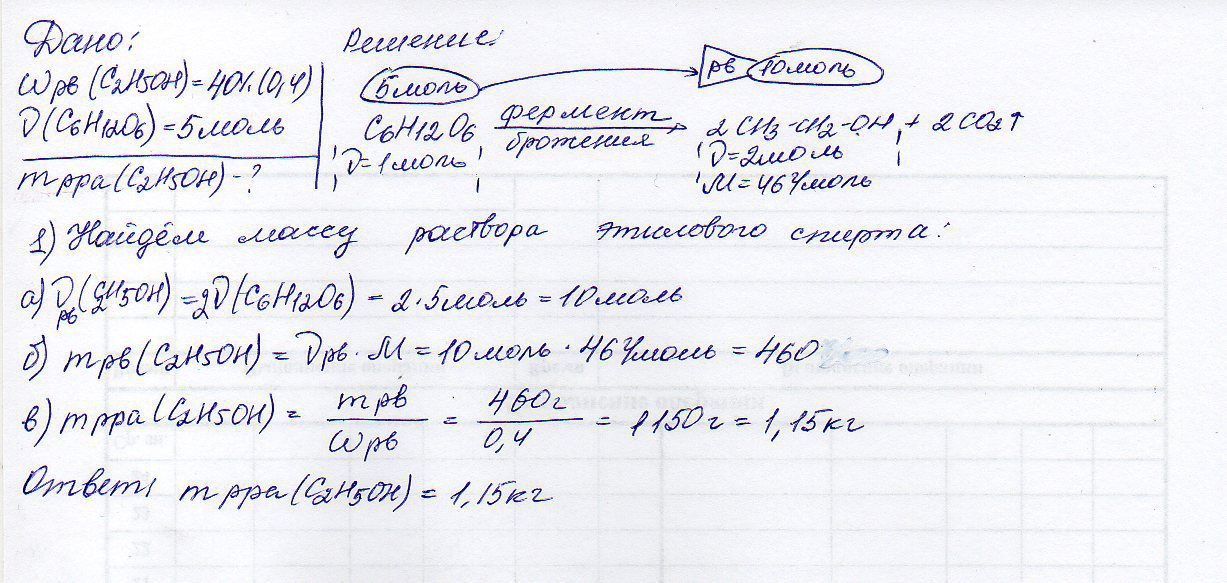 Дано:
Решение:
Wрв (C2H5OH) = 40% (0,4)
ν(C6H12O6) = 5моль
mрра (C2H5OH) - ?
5моль
рв 10моль
C6H12O6 фермент брожения 2CH3-CH2-OH + 2CO2↑
ν=1моль
ν=2моль
M=46г/моль
1) Найдём массу раствора этилового спирта:
а) νрв(C2H5OH) = 2ν(C6H12O6) = 2·5моль = 10моль
б) mрв (C2H5OH) = νрв · M = 10моль · 46г/моль = 460
в) mрра (C2H5OH) = mрв / Wрв = 460г / 0,4 = 1150г = 1,15кг
Ответ: mрра (C2H5OH) = 1,15кг